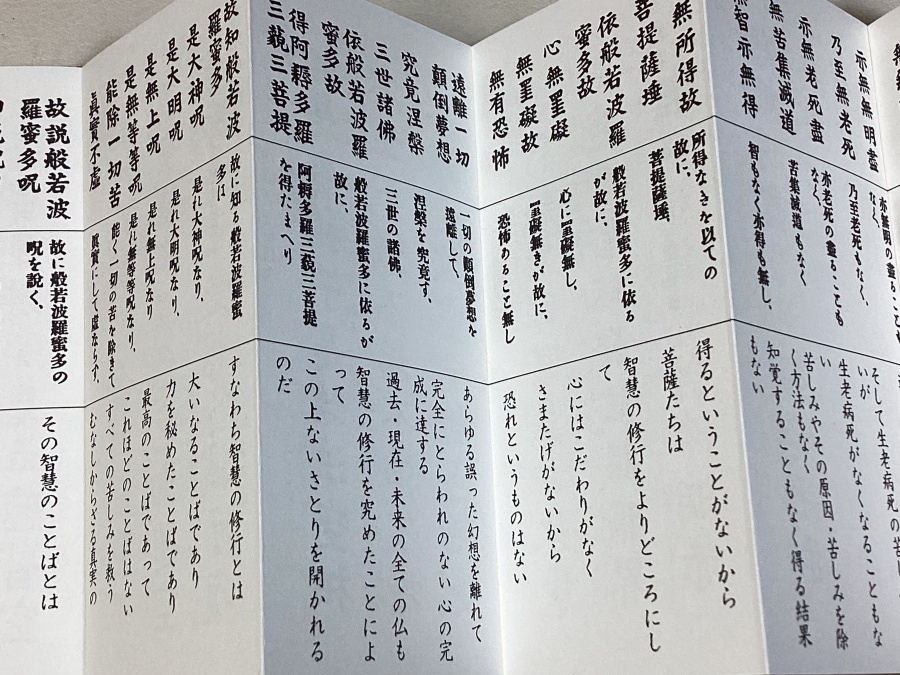 亦無無明盡
乃至無老死
亦無老死盡
無苦集滅道
無智亦無得
亦無明の盡ることも
なく、
乃至老死もなく、
亦老死の盡ることも
なく、
苦集滅道もなく
智もなく亦得も無し、
そして生老病死の苦し
いが
生老病死がなくなることもな
い
苦しみやその原因・苦しみを除
く方法もなく
知覚することもなく得る結果
もない
無所得故
菩提薩埵
依般若波羅
蜜多故
心無罣礙
無罣礙故
無有恐怖
所得なきを以ての
故に、
菩提薩埵、
般若波羅蜜多に依る
が故に、
心に罣礙無し、
罣礙無きが故に、
恐怖あること無し
得るということがないから
菩薩たちは
智慧の修行をよりどころにし
て
心にはこだわりがなく
さまたげがないから
恐れというものはない
遠離一切
顛倒夢想
究竟涅槃
三世諸佛
依般若波羅
蜜多故
得阿耨多羅
三藐三菩提
一切の顛倒夢想を
遠離して、
涅槃を究竟す、
三世の諸佛、
般若波羅蜜多に依るが
故に、
阿耨多羅三藐三菩提
を得たまへり
あらゆる誤った幻想を離れて
完全にとらわれのない心の完
成に達する
過去・現在・未来の全ての仏も
智慧の修行を究めたことによ
って
この上ないさとりを開かれる
のだ
故知般若波
羅蜜多
是大神呪
是大明呪
是無上呪
是無等等呪
能除一切苦
眞實不虛
故に知る般若波羅蜜
多は
是れ大神呪なり、
是れ大明呪なり、
是れ無上呪なり
是れ無等等呪なり、
能く一切の苦を除きて
眞實にして虛ならず、
すなわち智慧の修行とは
大いなることばであり
力を秘めたことばであり
最高のことばであって
これほどのことばはない
すべての苦しみを救う
むなしからざる真実の
故説般若波
羅蜜多呪
故に般若波羅蜜多の
呪を說く、
その智慧のことばとは